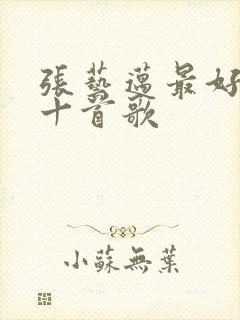 張藝邁最好
十首歌
小蘇無葉